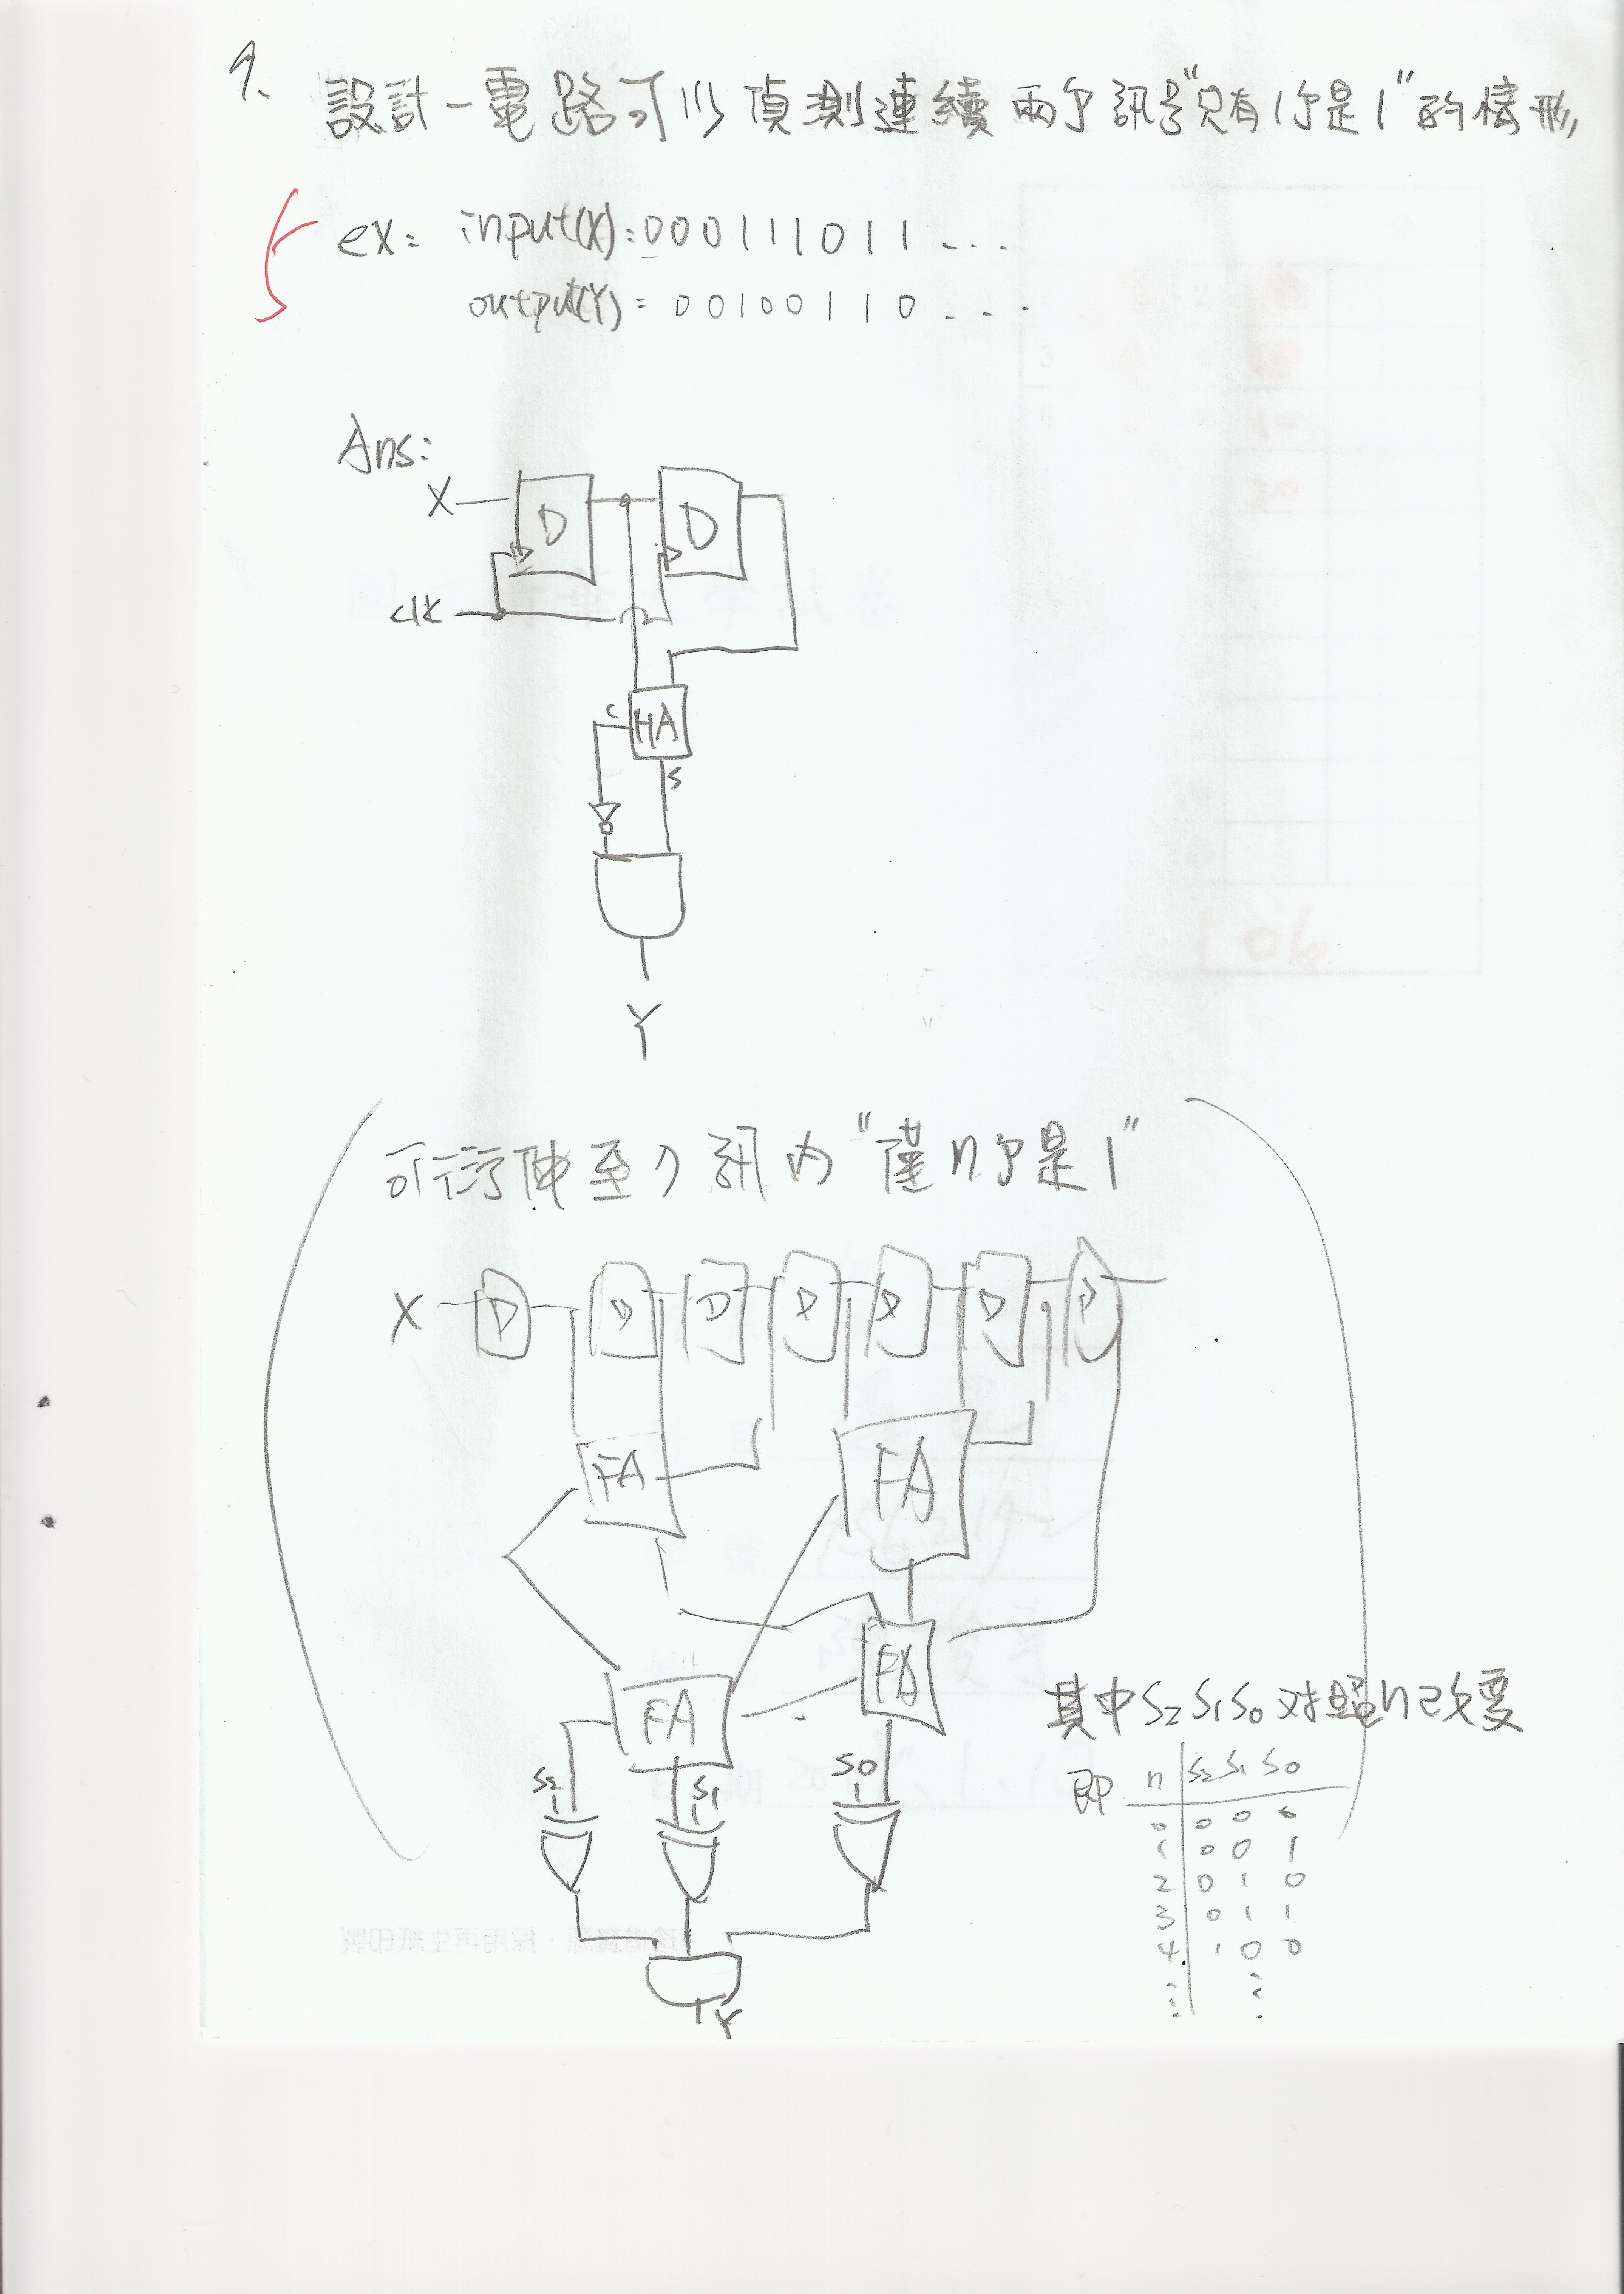 9.
設計一電路可以偵測連續兩个訊号"只有1个是1"的情形
ex: input(X):000111011...
output(Y)= 00100110...
Ans:
X D D
clk
C HA
S
Y
可衍伸至7訊內"僅n个是1"
X D D D D D D D
FA FA
FA
FA
S2 S1 S0
Y
其中S2S1S0對照n改變
即 n S2 S1 S0
0 0 0 0
1 0 0 1
2 0 1 0
3 0 1 1
4 1 0 0